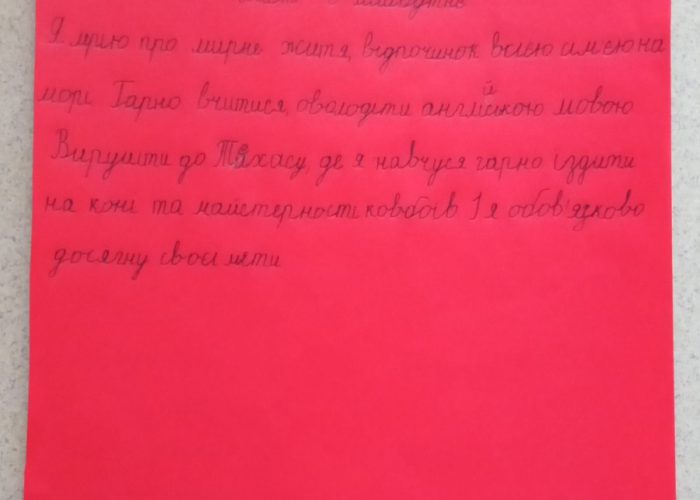 Я мрію про мирне житя, відпочинок всією сімєю на
морі Гарно вчитися, оволодіти англійскою мовою
Вирушити до Тахасу, де я навчуся гарно їздити
на коні та майстерності ковбоїв І я обов'язково
досягну своєї мети